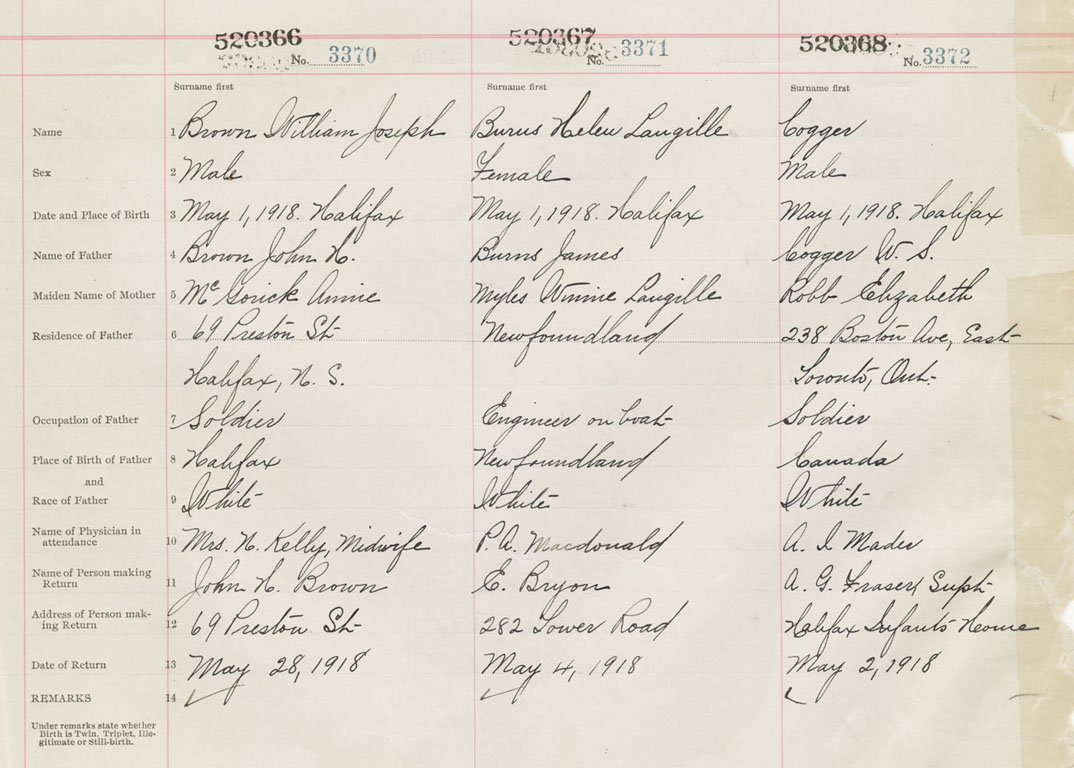 520366 520367 520368
No. 3370 No. 3371 No. 3372
Surname first Surname first Surname first
Name 1 Brown William Joseph Burns Helen Langille Cogger
Sex 2 Male Female Male
Date and Place of Birth 3 May 1, 1918. Halifax May 1, 1918. Halifax May 1, 1918. Halifax
Name of Father 4 Brown John H. Burns James Cogger W. S.
Maiden Name of Mother 5 Mc Gorick Annie Myles Winnie Langille Robb Elizabeth
Residence of Father 6 69 Preston St Newfoundland 238 Boston Ave, East
Halifax, N. S. Toronto, Ont.
Occupation of Father 7 Soldier Engineer on boat Soldier
Place of Birth of Father 8 Halifax Newfoundland Canada
and
Race of Father 9 White White White
Name of Physician in
attendance 10 Mrs. N. Kelly, Midwife P. A. Macdonald A. I Mader
Name of Person making
Return 11 John H. Brown E. Bryon A. G. Fraser, Supt
Address of Person mak-
ing Return 12 69 Preston St 282 Tower Road Halifax Infants Home
Date of Return 13 May 28, 1918 May 4, 1918 May 2, 1918
REMARKS 14
Under remarks state whether
Birth is Twin, Triplet, Ille-
gitimate or Still-birth.